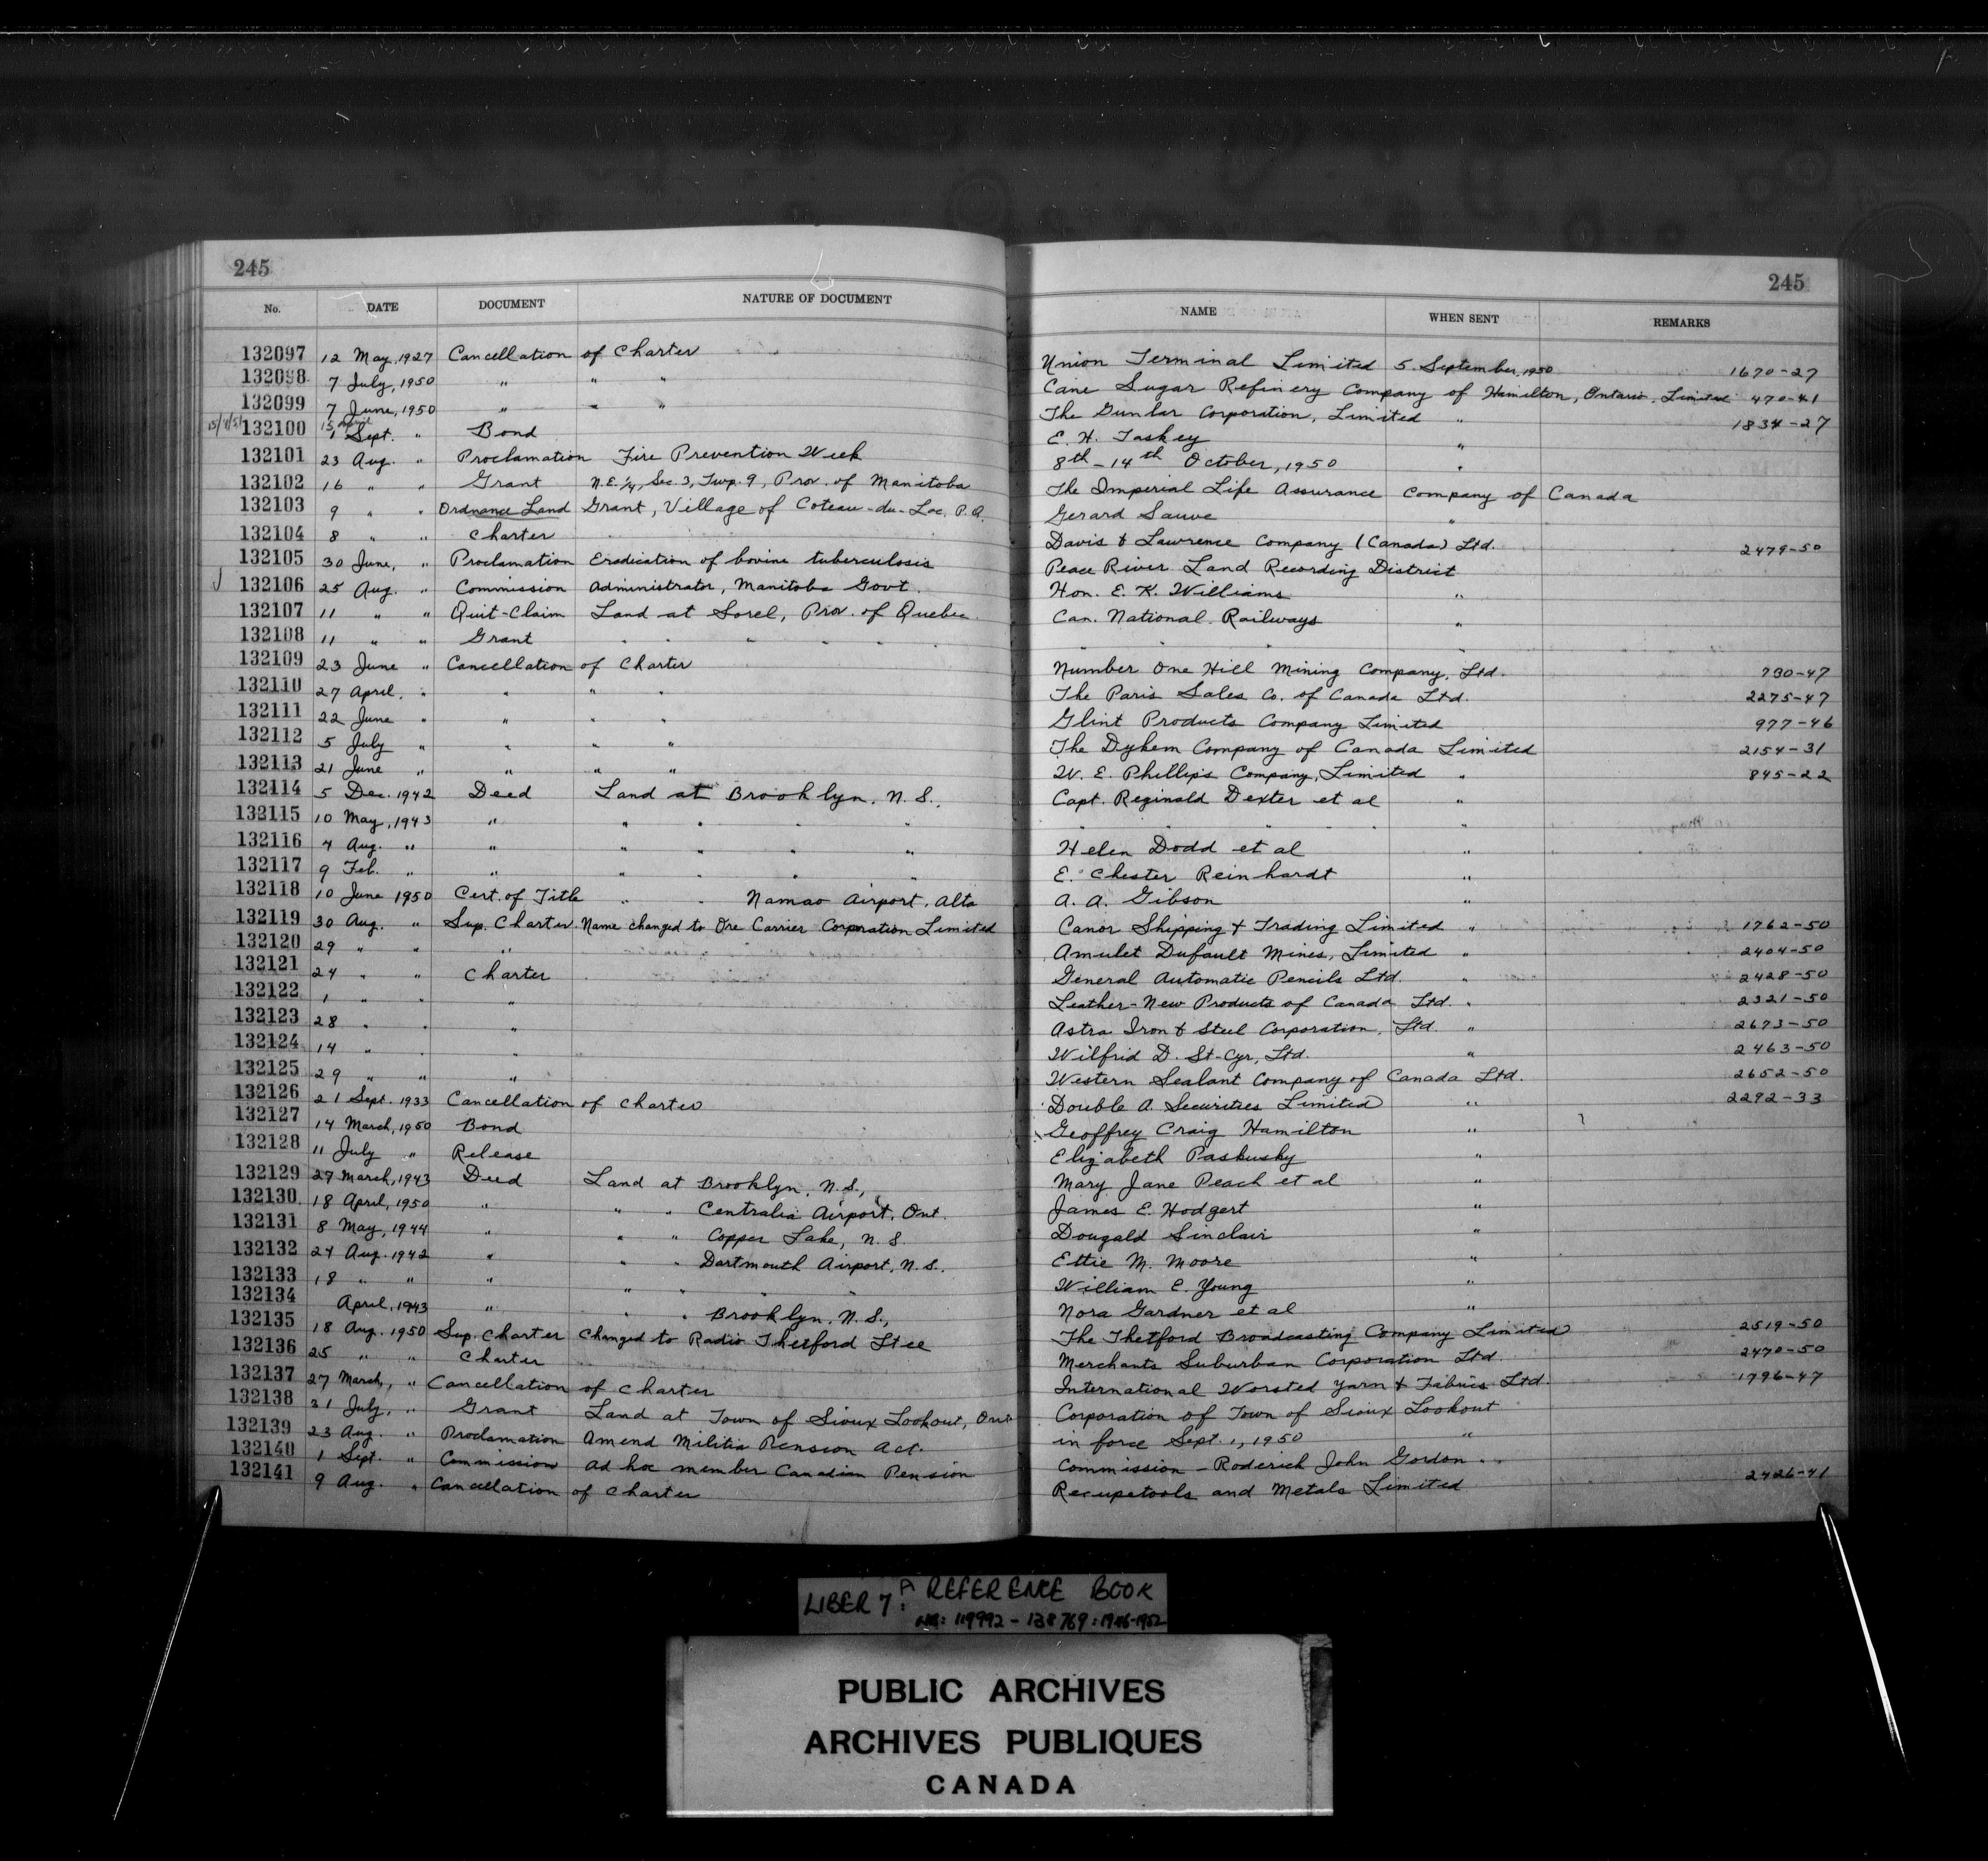 245 245
No. DATE DOCUMENT NATURE OF DOCUMENT NAME WHEN SENT REMARKS
132097 12 May, 1927 Cancellation of Charter Union Terminal Limited 5 September, 1950 1670-27
132098 7 July, 1950 " " " Cane Sugar Refinery Company of Hamilton, Ontario, Limited 470-41
132099 7 June, 1950 " " " The Dunlar Corporation, Limited " 1834-27
132100 1 Sept. " Bond E. H. Taskey "
132101 23 Aug. " Proclamation Fire Prevention Week 8th - 14th October, 1950 "
132102 16 " " Grant N.E. 1/4, Sec. 3, Twp. 9, Prov. of Manitoba The Imperial Life Assurance Company of Canada
132103 9 " " Ordnance Land Grant, Village of Coteau-du-Lac, P.Q. Gerard Sauve "
132104 8 " " Charter Davis & Lawrence Company (Canada) Ltd. 2479-50
132105 30 June, " Proclamation Eradication of bovine tuberculosis Peace River Land Recording District
132106 25 Aug. " Commission Administrator, Manitoba Govt. Hon. E. K. Williams "
132107 11 " " Quit-Claim Land at Sorel, Prov. of Quebec. Can. National Railways "
132108 11 " " Grant " " " " " " " "
132109 23 June " Cancellation of Charter Number One Hill Mining Company, Ltd. 790-47
132110 27 April, " " " " The Paris Sales Co. of Canada Ltd. 2275-47
132111 22 June " " " " Glint Products Company Limited 977-46
132112 5 July " " " " The Dykem Company of Canada Limited 2154-31
132113 21 June " " " " W. E. Phillips Company, Limited " 845-22
132114 5 Dec. 1942 Deed Land at Brooklyn, N.S., Capt. Reginald Dexter et al "
132115 10 May, 1943 " " " " " " " " " " "
132116 4 Aug. " " " " " " Helen Dodd et al "
132117 9 Feb. " " " " " " E. Chester Reinhardt "
132118 10 June 1950 Cert. of Title " " Namao Airport, Alta A. A. Gibson "
132119 30 Aug. " Sup. Charter Name changed to Ore Carrier Corporation Limited Canor Shipping & Trading Limited " 1762-50
132120 29 " " " Amulet Dufault Mines, Limited " 2404-50
132121 24 " " Charter General Automatic Pencils Ltd. " 2428-50
132122 1 " " " Leather-New Products of Canada Ltd. " 2321-50
132123 28 " " " Astra Iron & Steel Corporation, Ltd. " 2673-50
132124 14 " " " Wilfrid D. St-Cyr, Ltd. " 2463-50
132125 29 " " " Western Sealant Company of Canada Ltd. 2652-50
132126 21 Sept. 1933 Cancellation of Charter Double A. Securities Limited " 2292-33
132127 14 March, 1950 Bond Geoffrey Craig Hamilton "
132128 11 July " Release Elizabeth Paskusky "
132129 27 March, 1943 Deed Land at Brooklyn, N.S., Mary Jane Peach et al "
132130 18 April, 1950 " " " Centralia Airport, Ont. James E. Hodgert "
132131 8 May, 1944 " " " Copper Lake, N.S. Dougald Sinclair "
132132 24 Aug. 1942 " " " Dartmouth Airport, N.S. Ettie M. Moore "
132133 18 " " " " " " " William E. Young "
132134 April, 1943 " " " Brooklyn, N.S., Nora Gardner et al "
132135 18 Aug. 1950 Sup. Charter Changed to Radio Thetford Ltee The Thetford Broadcasting Company Limited 2519-50
132136 25 " " Charter Merchants Suburban Corporation Ltd. 2470-50
132137 27 March, " Cancellation of Charter International Worsted Yarn & Fabrics Ltd. 1796-47
132138 31 July, " Grant Land at Town of Sioux Lookout, Ont Corporation of Town of Sioux Lookout
132139 23 Aug. " Proclamation Amend Militia Pension Act. in force Sept. 1, 1950 "
132140 1 Sept. " Commission Ad hoc member Canadian Pension Commission - Roderick John Gordon "
132141 9 Aug. " Cancellation of Charter Recupetools and Metals Limited 2426-41
LIBER 7A: REFERENCE BOOK
NOS: 119992 - 138769: 1946-1952
PUBLIC ARCHIVES
ARCHIVES PUBLIQUES
CANADA